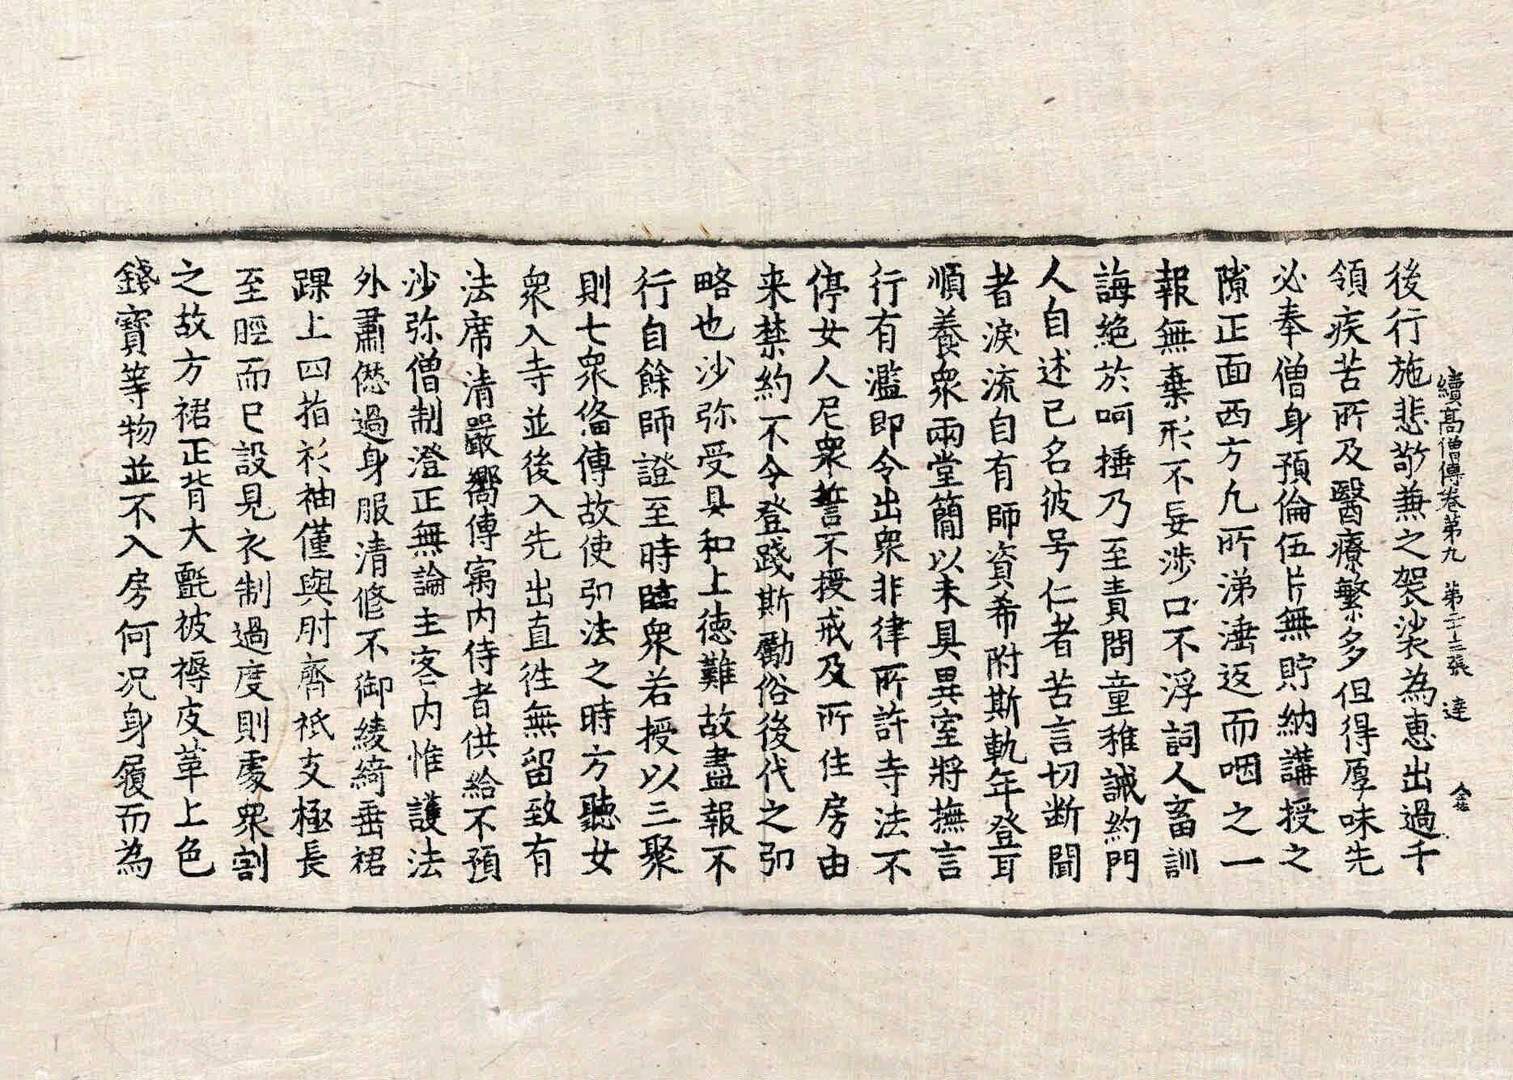 續高僧傳卷第九 第二十三張 達
後行施悲敬兼之袈裟為惠出過千
領疾苦所及醫療繁多但得厚味先
必奉僧身預倫伍片無貯納講授之
隙正面西方凡所涕洟返而咽之一
報無棄形不妄涉口不浮詞人畜訓
誨絕於呵捶乃至責問童稚誡約門
人自述己名彼号仁者苦言切斷聞
者淚流自有師資希附斯軌年登耳
順養衆兩堂簡以未具異室將撫言
行有濫即令出衆非律所許寺法不
停女人尼衆誓不授戒及所住房由
来禁約不令登踐斯勵俗後代之卬
略也沙弥受具和上德難故盡報不
行自餘師證至時臨衆若授以三聚
則七衆俻傳故使卬法之時方聽女
衆入寺並後入先出直徃無留致有
法席清嚴嚮傳寓内侍者供給不預
沙弥僧制澄正無論主客内惟護法
外肅僽過身服清修不御綾綺垂裙
踝上四指衫袖僅與肘齊祇支極長
至脛而已設見衣制過度則處衆割
之故方裙正背大氈被褥皮革上色
錢寶等物並不入房何况身履而為